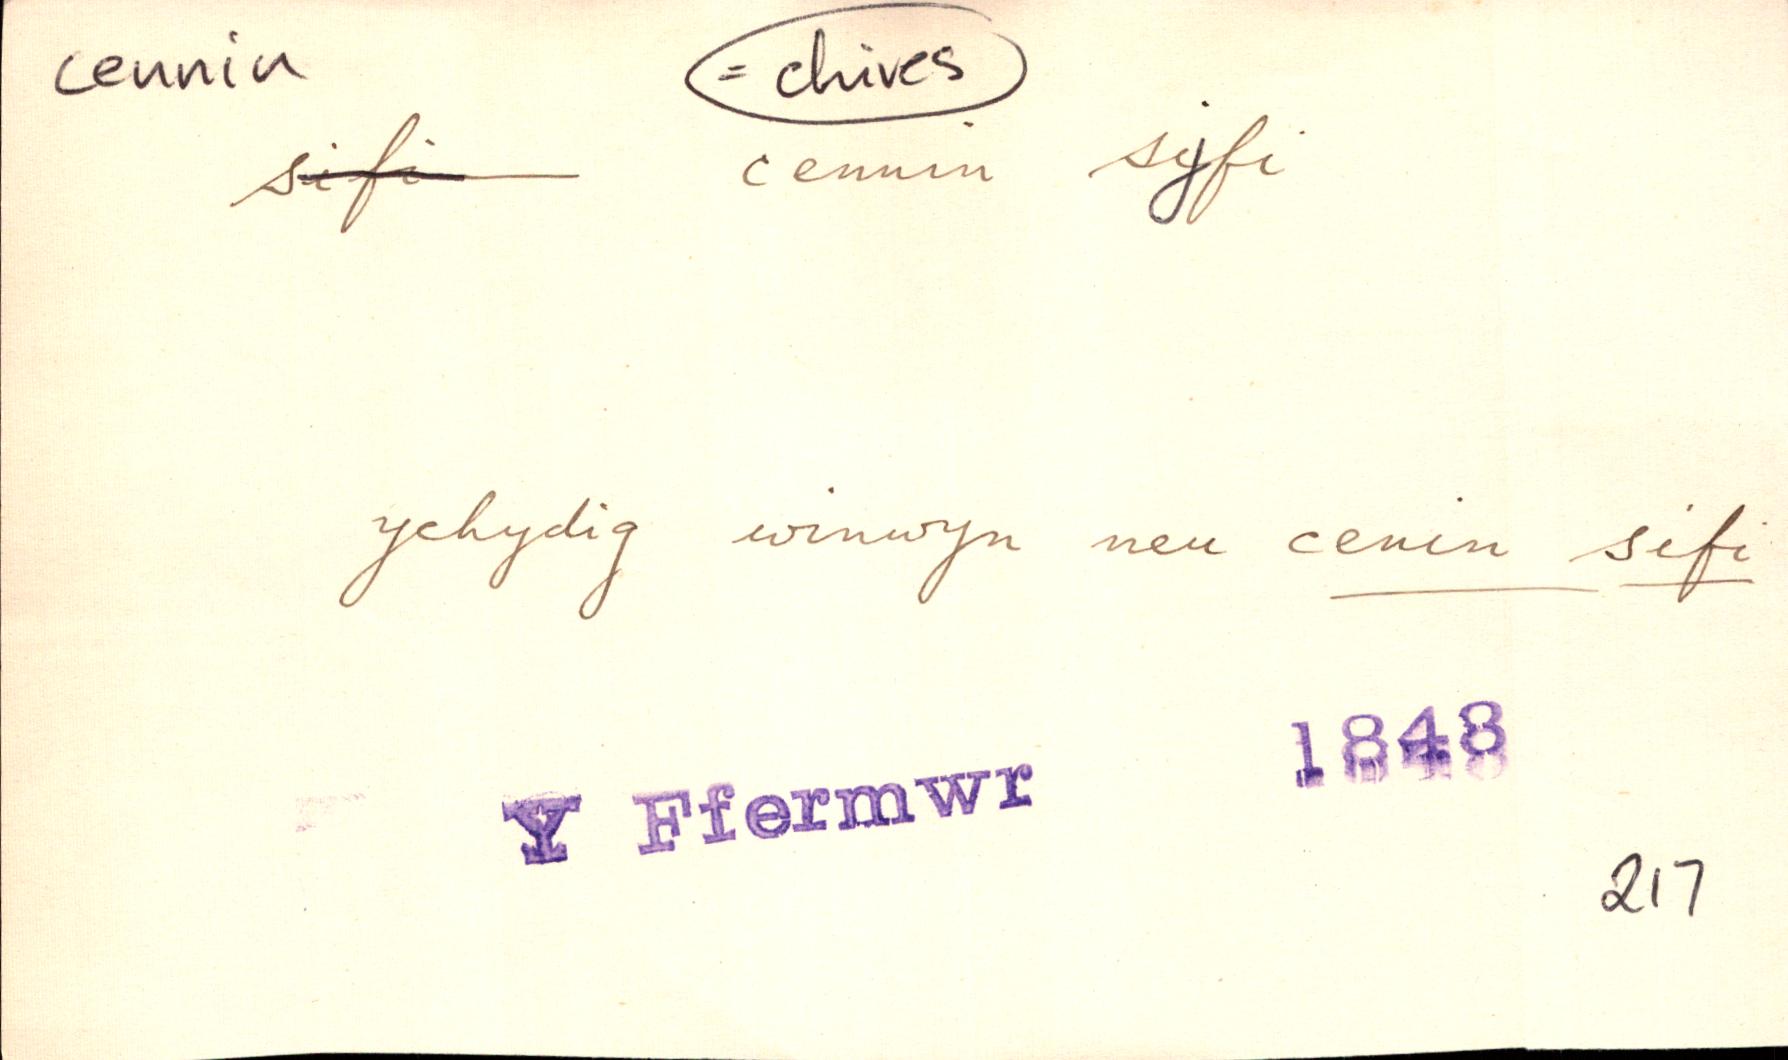 cennin = chives
sifi cennin syfi
ychydig winwyn neu cenin sifi
Y Ffermwr 1848
217